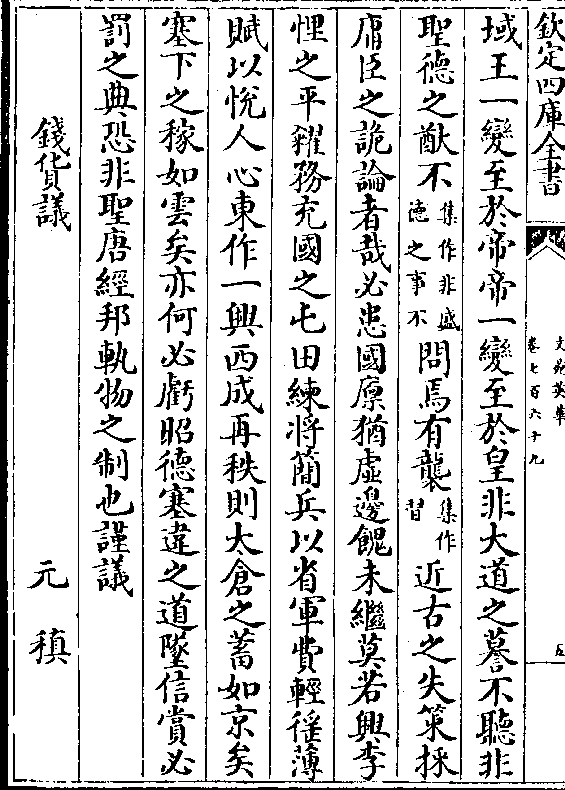 欽定四庫全書
文苑英華
卷七百六十九
域王一變至於帝帝一變至於皇非大道之謩不聽非
聖德之猷不集作非盛德之事不問焉有襲集作習近古之失策採
庸臣之詭論者哉必患國廩猶虛邊餽未繼莫若興李
悝之平糴務充國之屯田練將簡兵以省軍費輕徭薄
賦以悅人心東作一興西成再秩則太倉之蓄如京矣
塞下之稼如雲矣亦何必虧昭德塞違之道墜信賞必
罰之典恐非聖唐經邦軌物之制也謹議
錢貨議
元稹